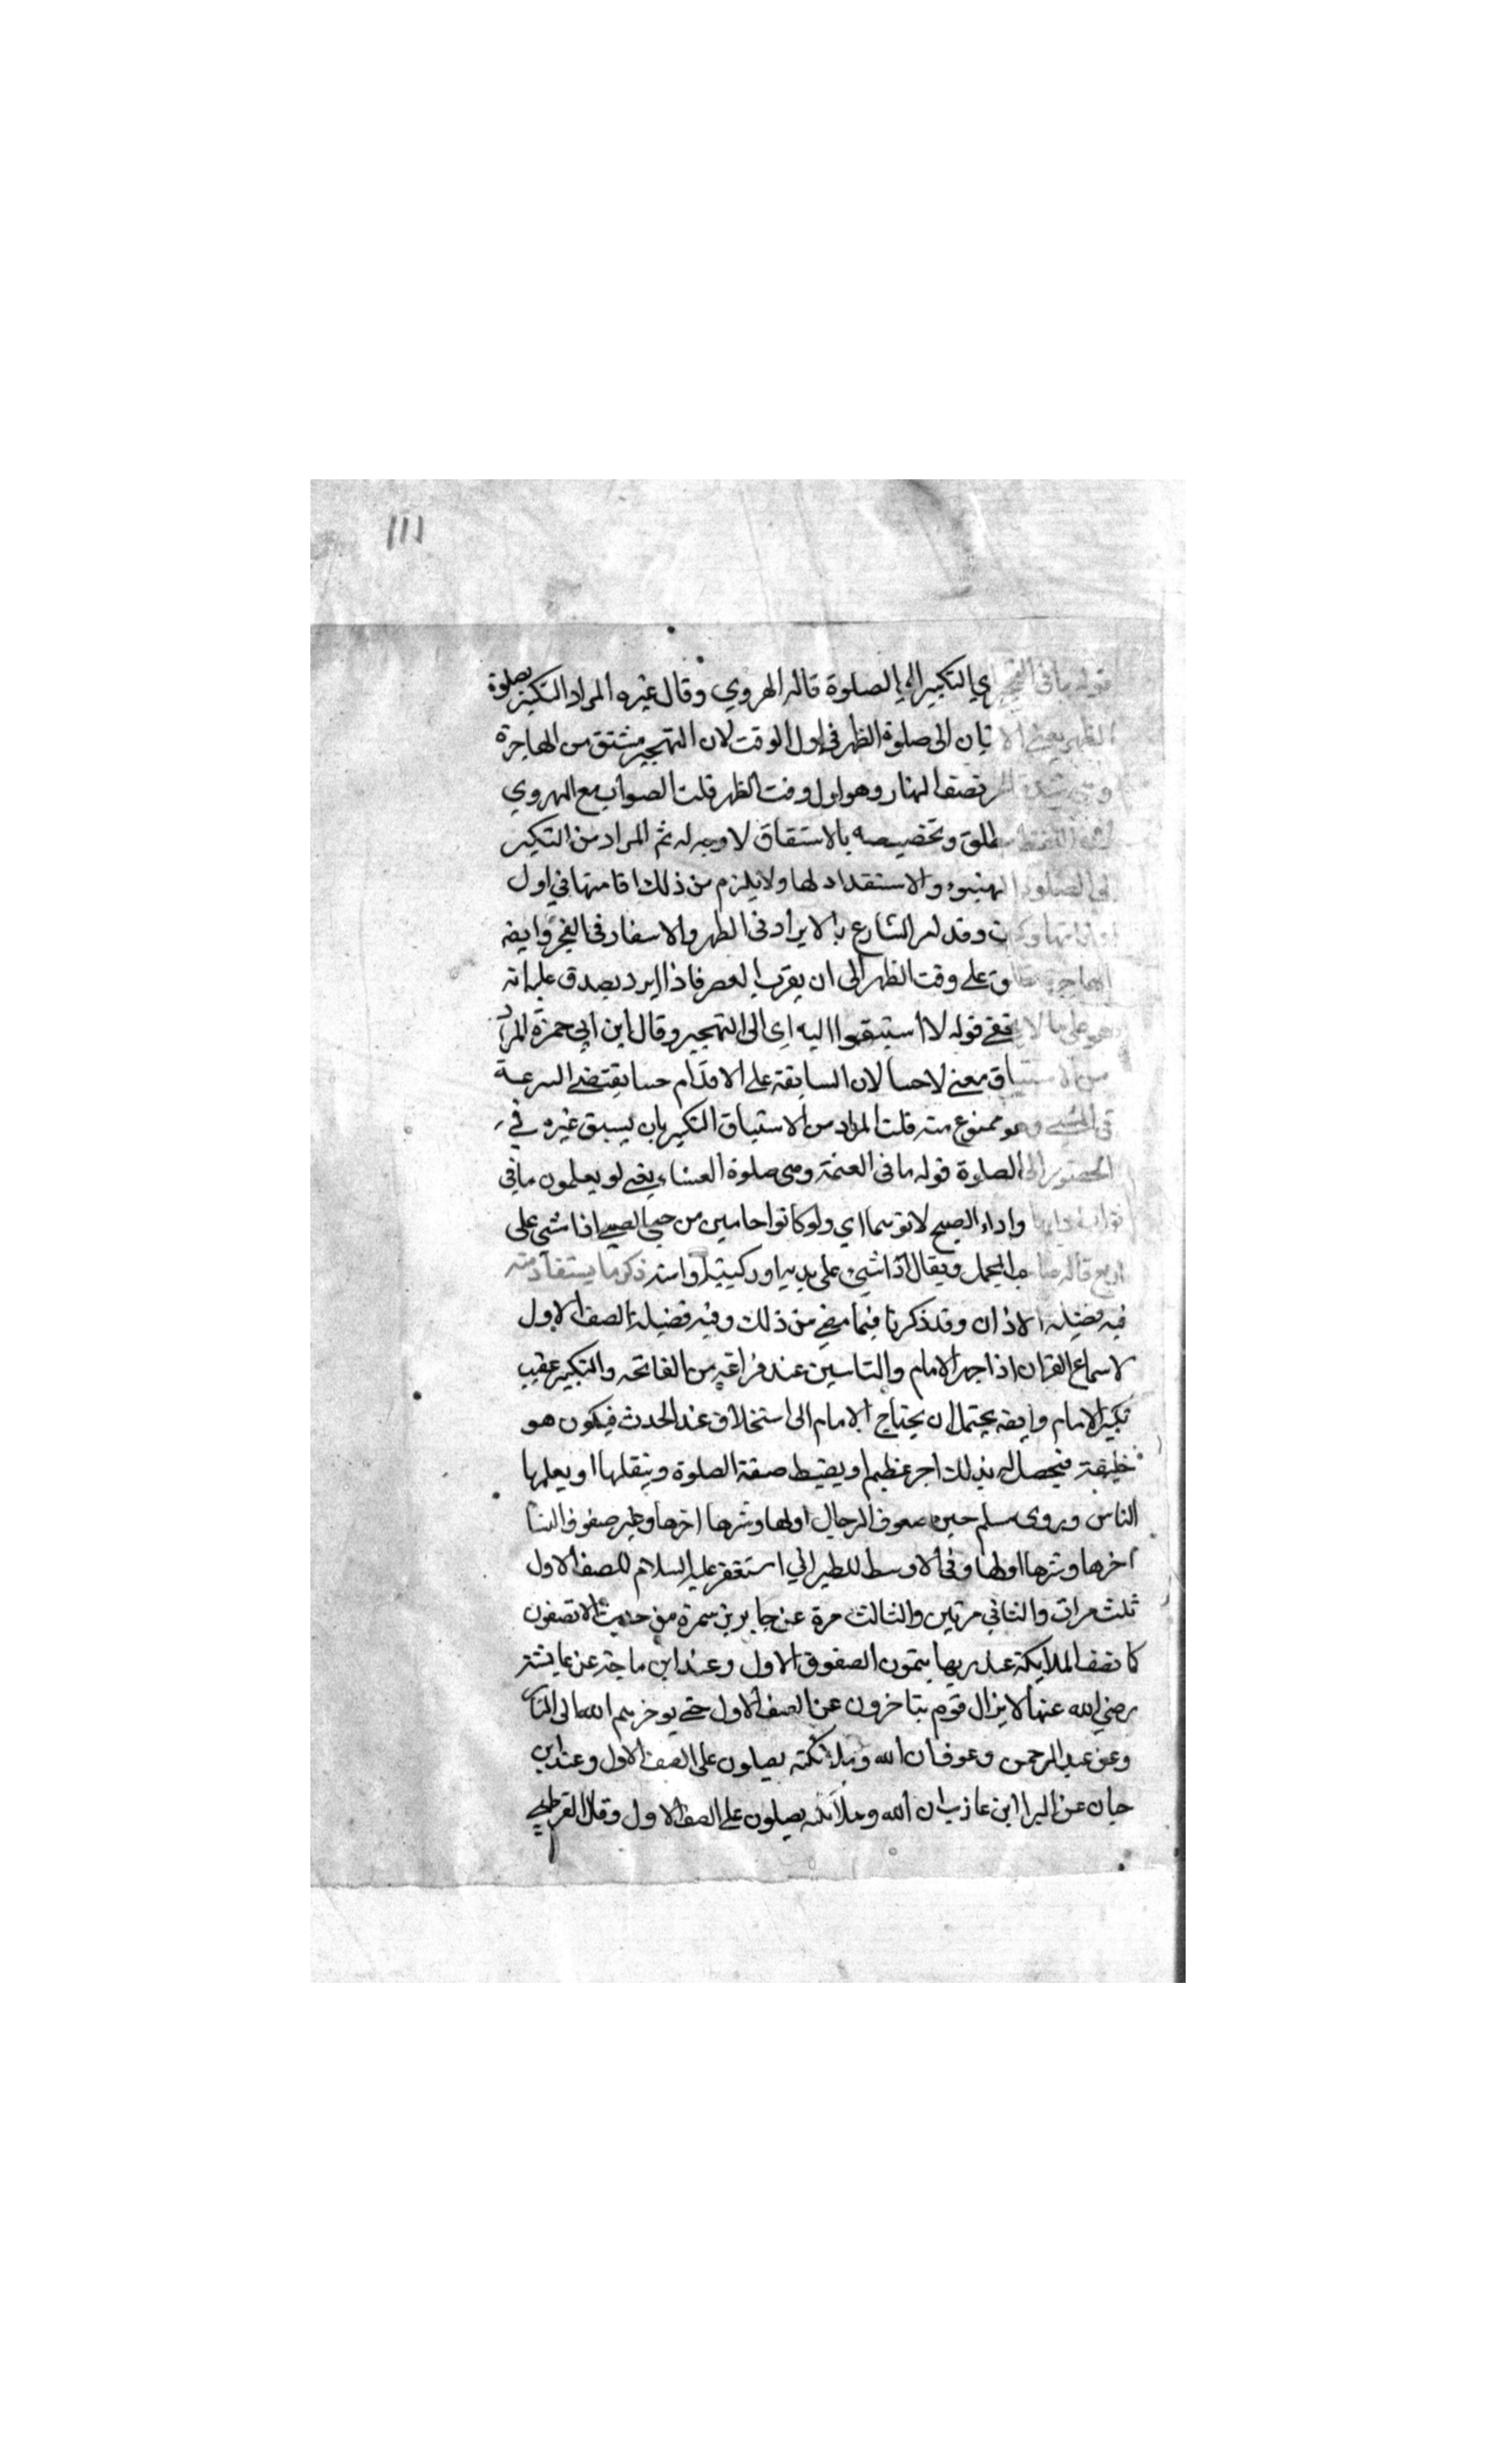 ١١١
قوله ما في التهجير اي التكبير الى الصلوة قاله الهروي وقال غيره المراد التكبير بصلوة
الظهر يعني الاتيان الى صلوة الظهر في اول الوقت لان التهجير مشتق من الهاجرة
وهي شدة الحر نصف النهار وهو اول وقت الظهر قلت الصواب مع الهروي
لان اللفظ مطلق وتخصيصه بالاشتقاق لا وجه له ثم المراد من التكبير
الى الصلوة التهيوء والاستعداد لها ولا يلزم من ذلك اقامتها في اول
اوقاتها وكيف وقد امر الشارع بالابراد في الظهر والاسفار في الفجر وايضه
الهاجرة تطلق على وقت الظهر الى ان يقرب العصر فاذا ابرد يصدق عليه انه
هجر على ما لا يخفى قوله لا استبقوا اليه اي الى التهجير وقال ابن ابي حمزة المراد
من الاستباق معنى لا حسا لان السابقة على الاقدام حسا يقتضي السرعة
في المشي وهو ممنوع منه قلت المراد من الاستباق التكبير بان يسبق غيره في
الحضور الى الصلوة قوله ما في العتمة وهي صلوة العشاء يعني لو يعلمون ما في
ثواب ادايها واداء الصبح لاتوهما اي ولو كانوا حابين من حبي الصبي اذا مشي على
اربع قاله صاحب المجمل ويقال اذا مشي على يديه او ركبتيه او استه ذكر ما يستفاد منه
فيه فضيلة الاذان وقد ذكرنا فيما مضي من ذلك وفيه فضيلة الصف الاول
لاسماع القران اذا جهر الامام والتامين عند فراغه من الفاتحه والتكبير عقيب
تكبير الامام وايضه يحتمل ان يحتاج الامام الى استخلاف عند الحدث فيكون هو
خليفته فيحصل له بذلك اجر عظيم او يضبط صفة الصلوة وينقلها او يعلمها
الناس وروى مسلم خير صفوف الرجال اولها وشرها اخرها وخير صفوف النسا
اخرها وشرها اولها وفي الاوسط للطبراني استغفر عليه السلام للصف الاول
ثلث مرات والثاني مرتين والثالث مرة عن جابر بن سمرة من حديث الا تصفون
كما تصف الملايكة عند ربها يتمون الصفوف الاول وعند ابن ماجة عن عايشة
رضي الله عنها لا يزال قوم يتاخرون عن الصف الاول حتي يوخرهم الله الى النار
وعن عبد الرحمن وعوف ان الله وملائكته يصلون على الصف الاول وعند ابن
حبان عن البرا ابن عازب ان الله وملائكته يصلون على الصف الاول وقال القرطبي